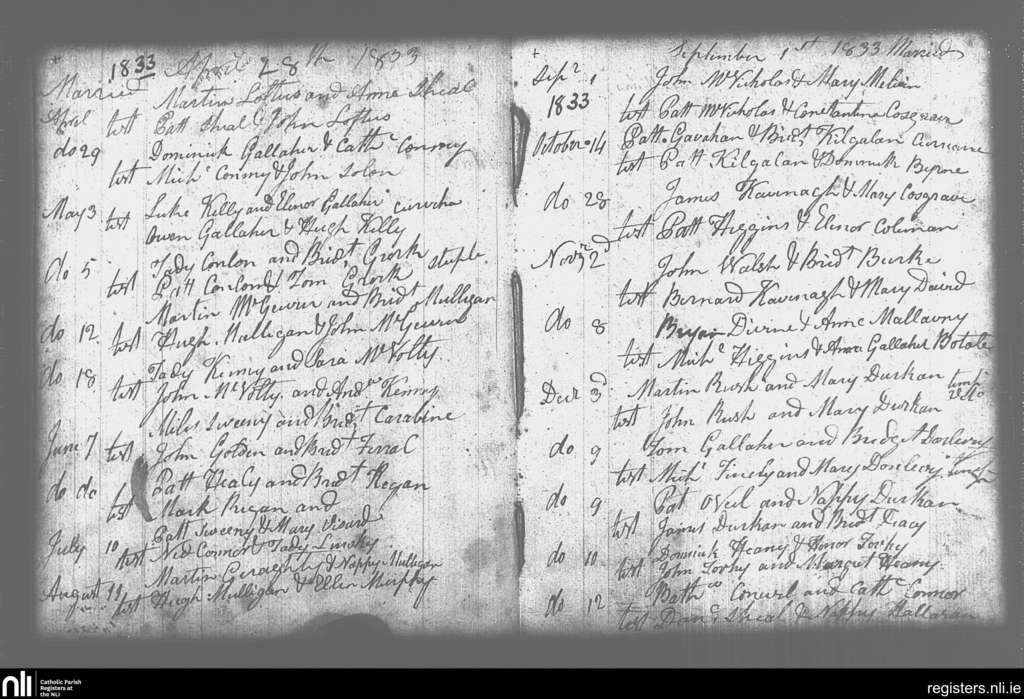 1833 April 28th 1833
Married Martin Loftus and Anna Sheal
April test Patt Sheal & John Loftus
do 29 Dominick Gallaher & Cathc Conmy
test Michl Conmy & John Solon
May 3 Luke Kelly and Elinor Gallaher
test Owen Gallaher & Hugh Kelly
do 5 Tady Conlon and Bridt Grork
test Patt Conlon & Tom Grork steple
Martin McGeurin and Bridt Mulligan
do 12 test Hugh Mulligan & John McGeurin
do 18 Tady Kenny and Sara McNolty
test John McNolty and Andw Kenny
Miles Sweeny and Bridt Carabine
June 7 test John Golden and Bridt Ferral
do do Patt Healy and Bridt Regan
test Mark Rigan and
July 10 Patt Sweeny & Mary
test Ned Connor & Tady Linsky
August 11 Martin Geraghty & Nappy Mulligan
test Hugh Mulligan & Ellen Murphy
September 1st 1833 Married
Sepr 1 John McNicholas & Mary
1833 test Patt McNicholas & Constantine Cosgrave
October 14 Patt Gavahan & Bridt Kilgalan
test Patt Kilgalan & Dominick Byrne
do 28 James Kavnagh & Mary Cosgrave
test Patt Higgins & Elinor Coleman
Novr 2nd John Walsh & Bridt Burke
test Bernard Kavnagh & Mary
do 8 Bryan Divine & Anne Mallavny
test Michl Higgins & Anna Gallaher
Decr 3d Martin Rush and Mary Durkan
test John Rush and Mary Durkan
do 9 Tom Gallaher and Bridget Donlevy
test Michl Finely and Mary Donlevy
do 9 Pat ONeil and Nappy Durkan
test James Durkan and Bridt Tracy
do 10 Dominick Heany & Honor Torhy
test John Torhy and Margret Heany
do 12 Bathw and Cathc Connor
test Danl Sheal & Nappy Halloran
nli Catholic Parish
Registers at
the NLI
registers.nli.ie